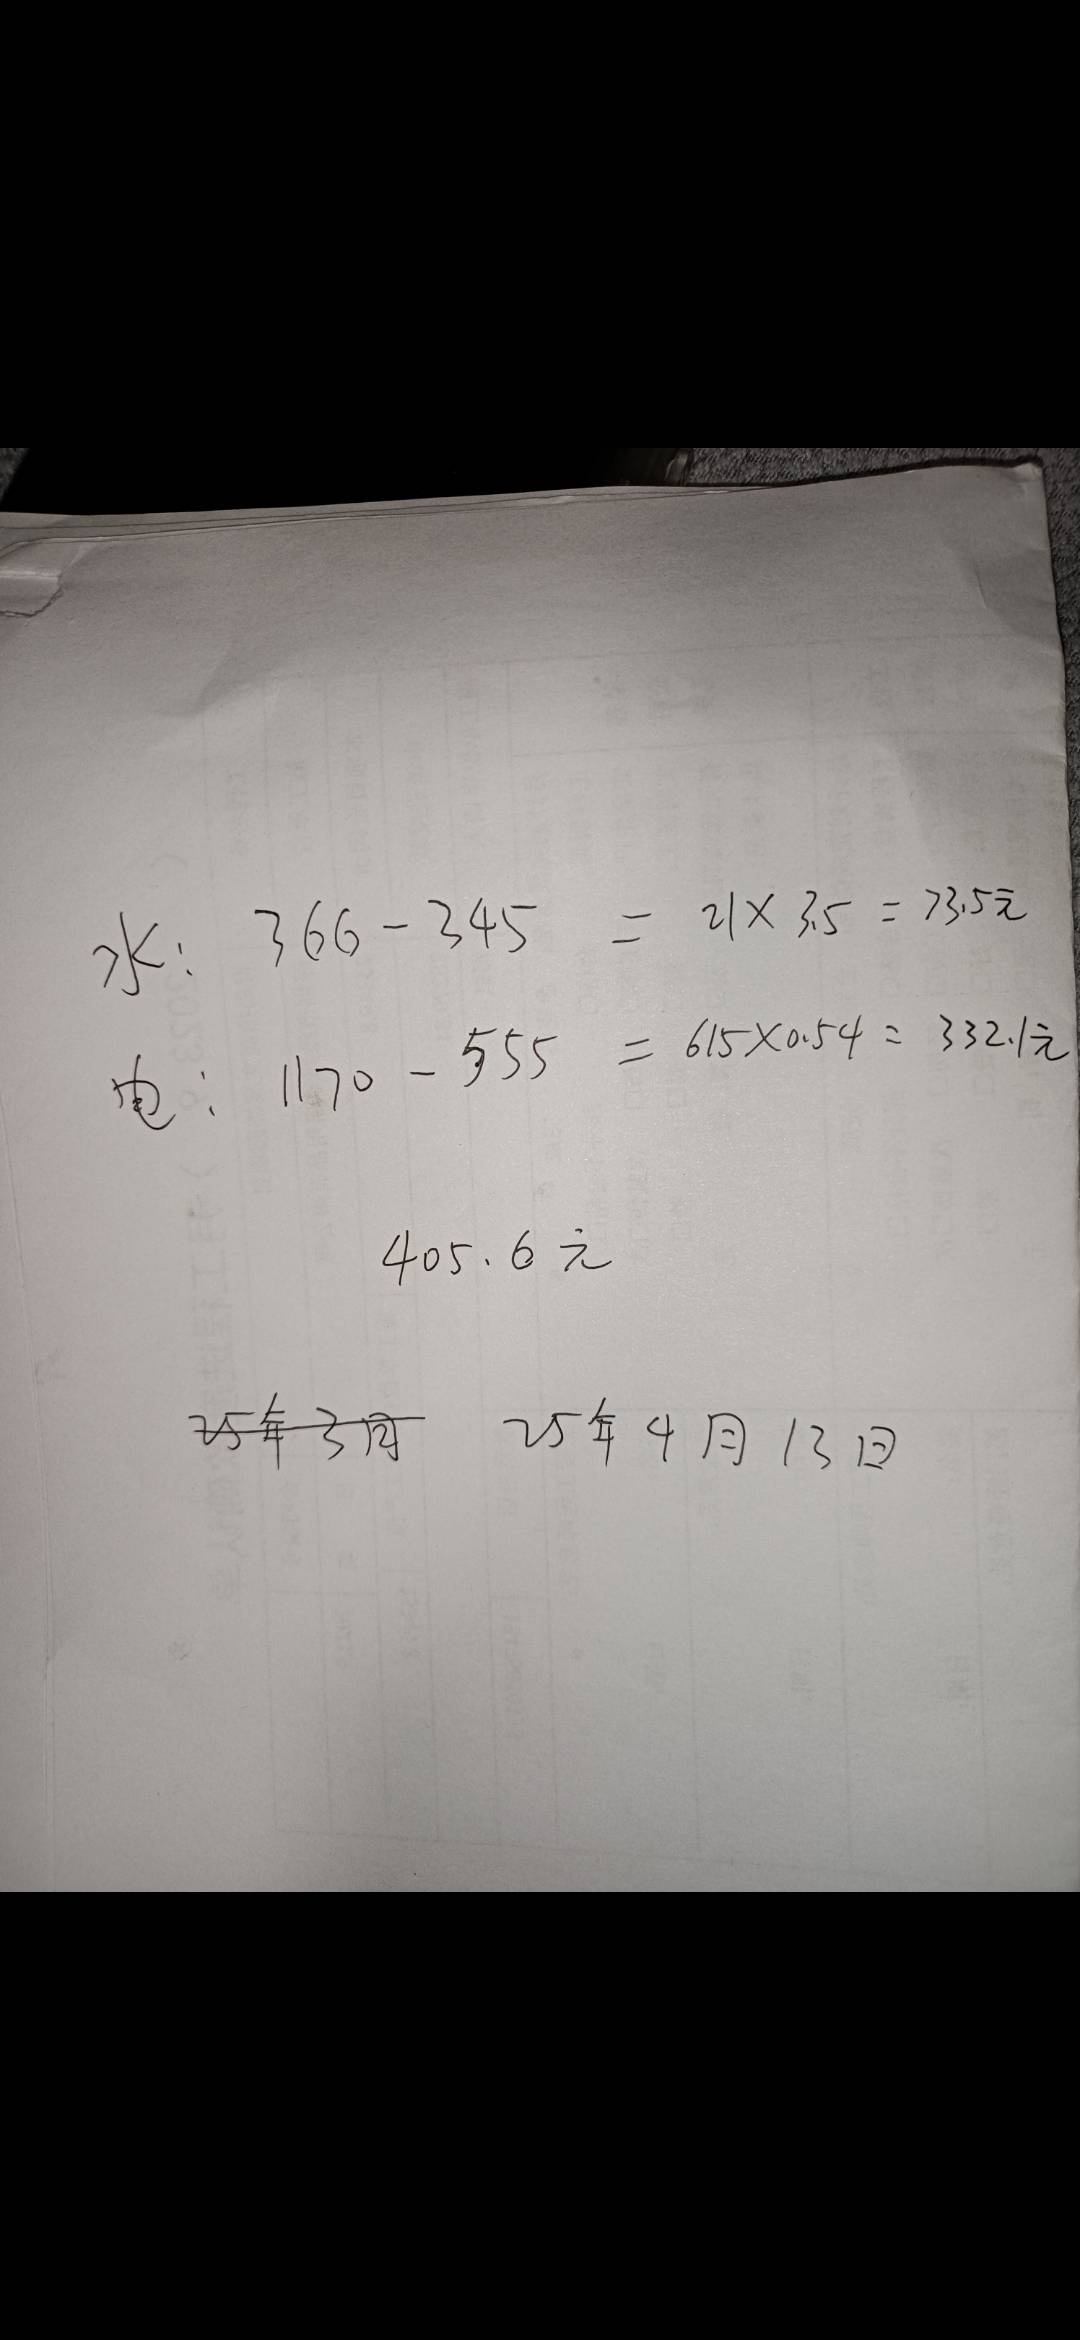 水: 366-345 = 21×3.5=73.5元
电: 1170-555 = 615×0.54= 332.1元
405.6元
25年3月 25年4月13日